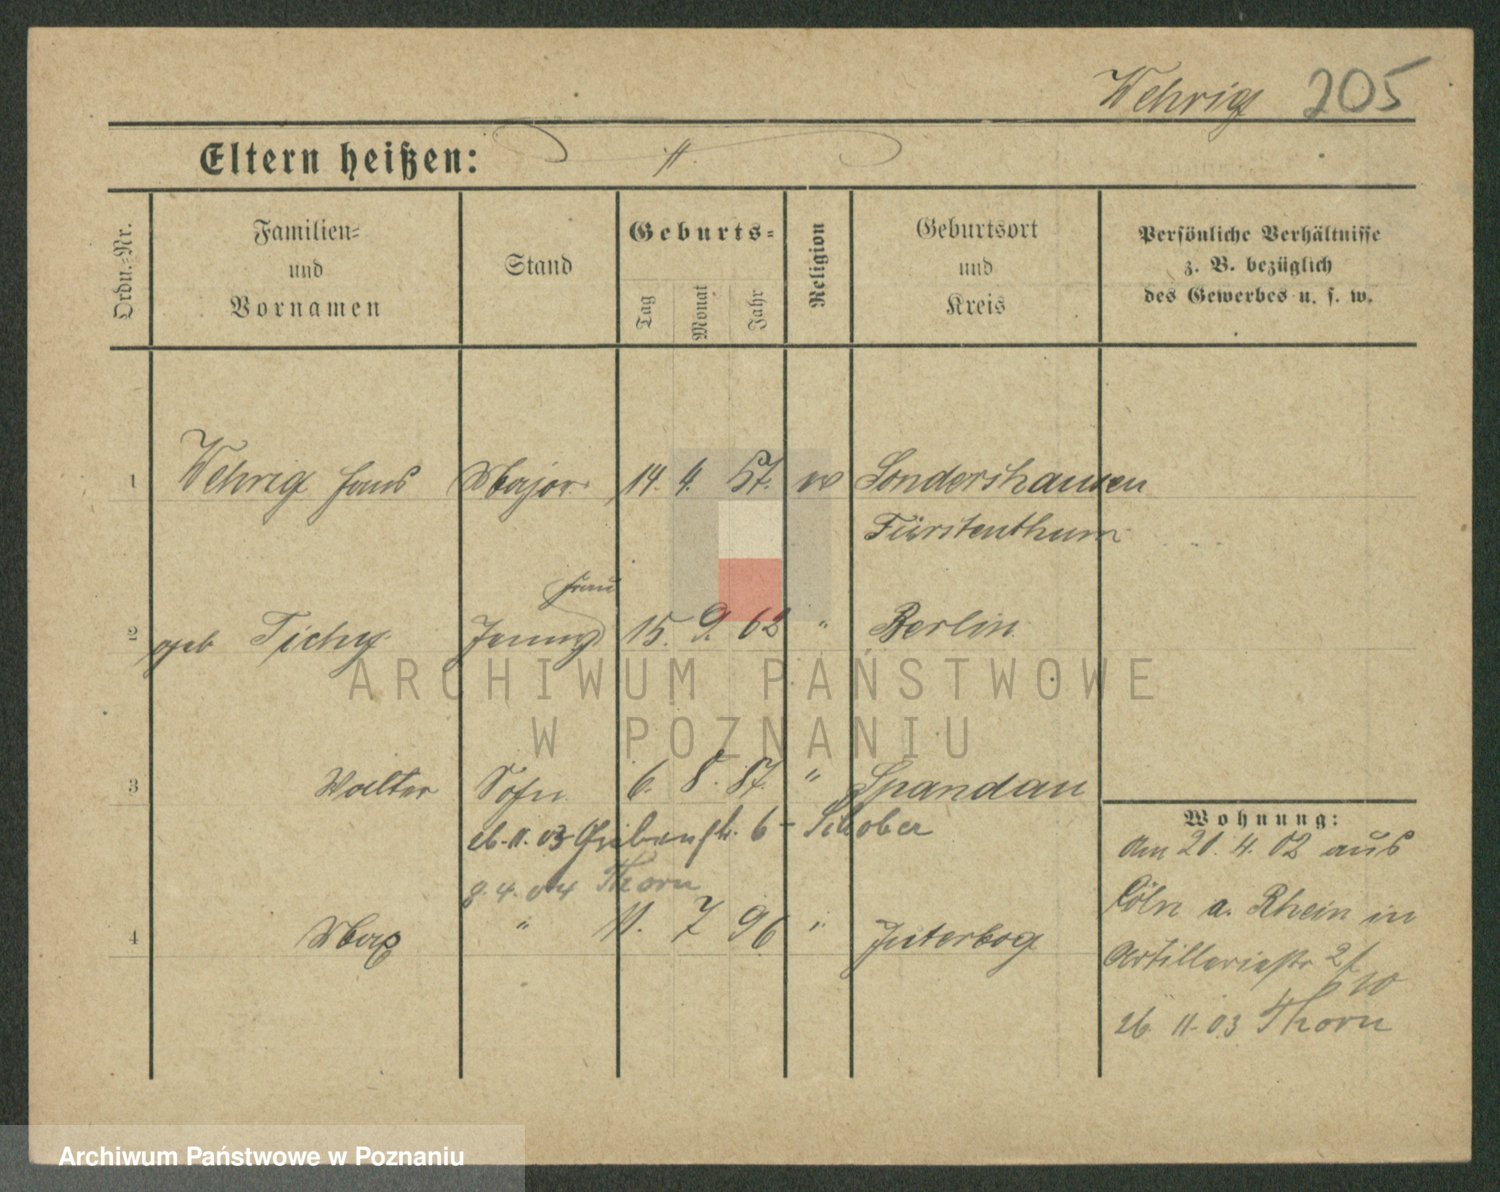 Wehrig 205
Eltern heißen:
Ordn.-Nr.
Familien- und Vornamen
Stand
Geburts-
Tag
Monat
Jahr
Religion
Geburtsort und Kreis
Persönliche Verhältnisse
z. B. bezüglich
des Gewerbes u. s. w.
1 Wehrig Hans Major 14. 4. 57. ev Sondershausen
Fürstenthum
Frau
2 geb Tichy Jenny 15. 9. 62 " Berlin
3 Walter Sohn 6. 8. 87. " Spandau
26.11.03 6 - Schober
8.4.04 Thorn
4 Max " 11. 7 96 " Juterbog
Wohnung:
Am 21. 4. 02 aus
Cöln a. Rhein in
Artilleriestr 2
26. 11. 03 Thorn
ARCHIWUM PAŃSTWOWE
W POZNANIU
Archiwum Państwowe w Poznaniu